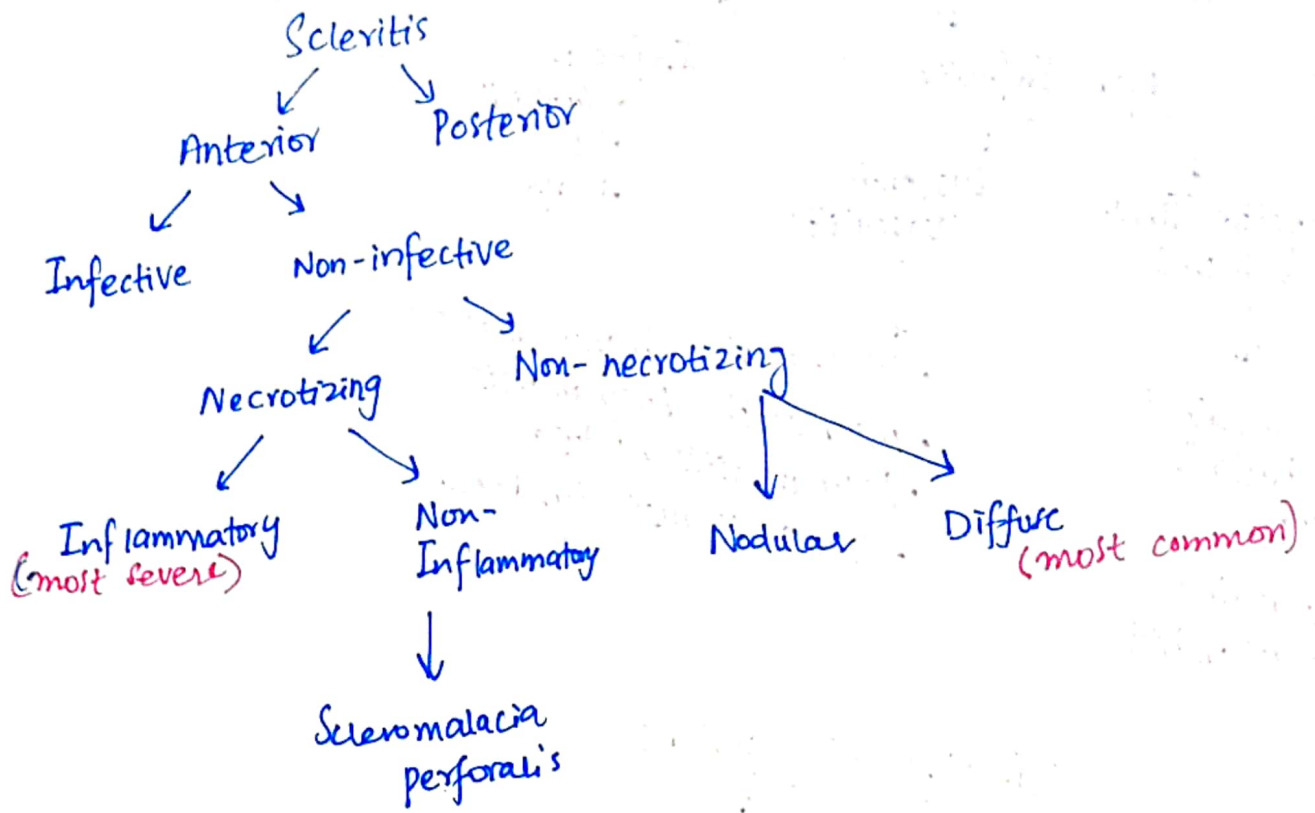 Scleritis
Anterior
Posterior
Infective
Non-infective
Necrotizing
Non-necrotizing
Inflammatory
(most severe)
Non-
Inflammatory
Nodular
Diffuse
(most common)
Scleromalacia
perforalis